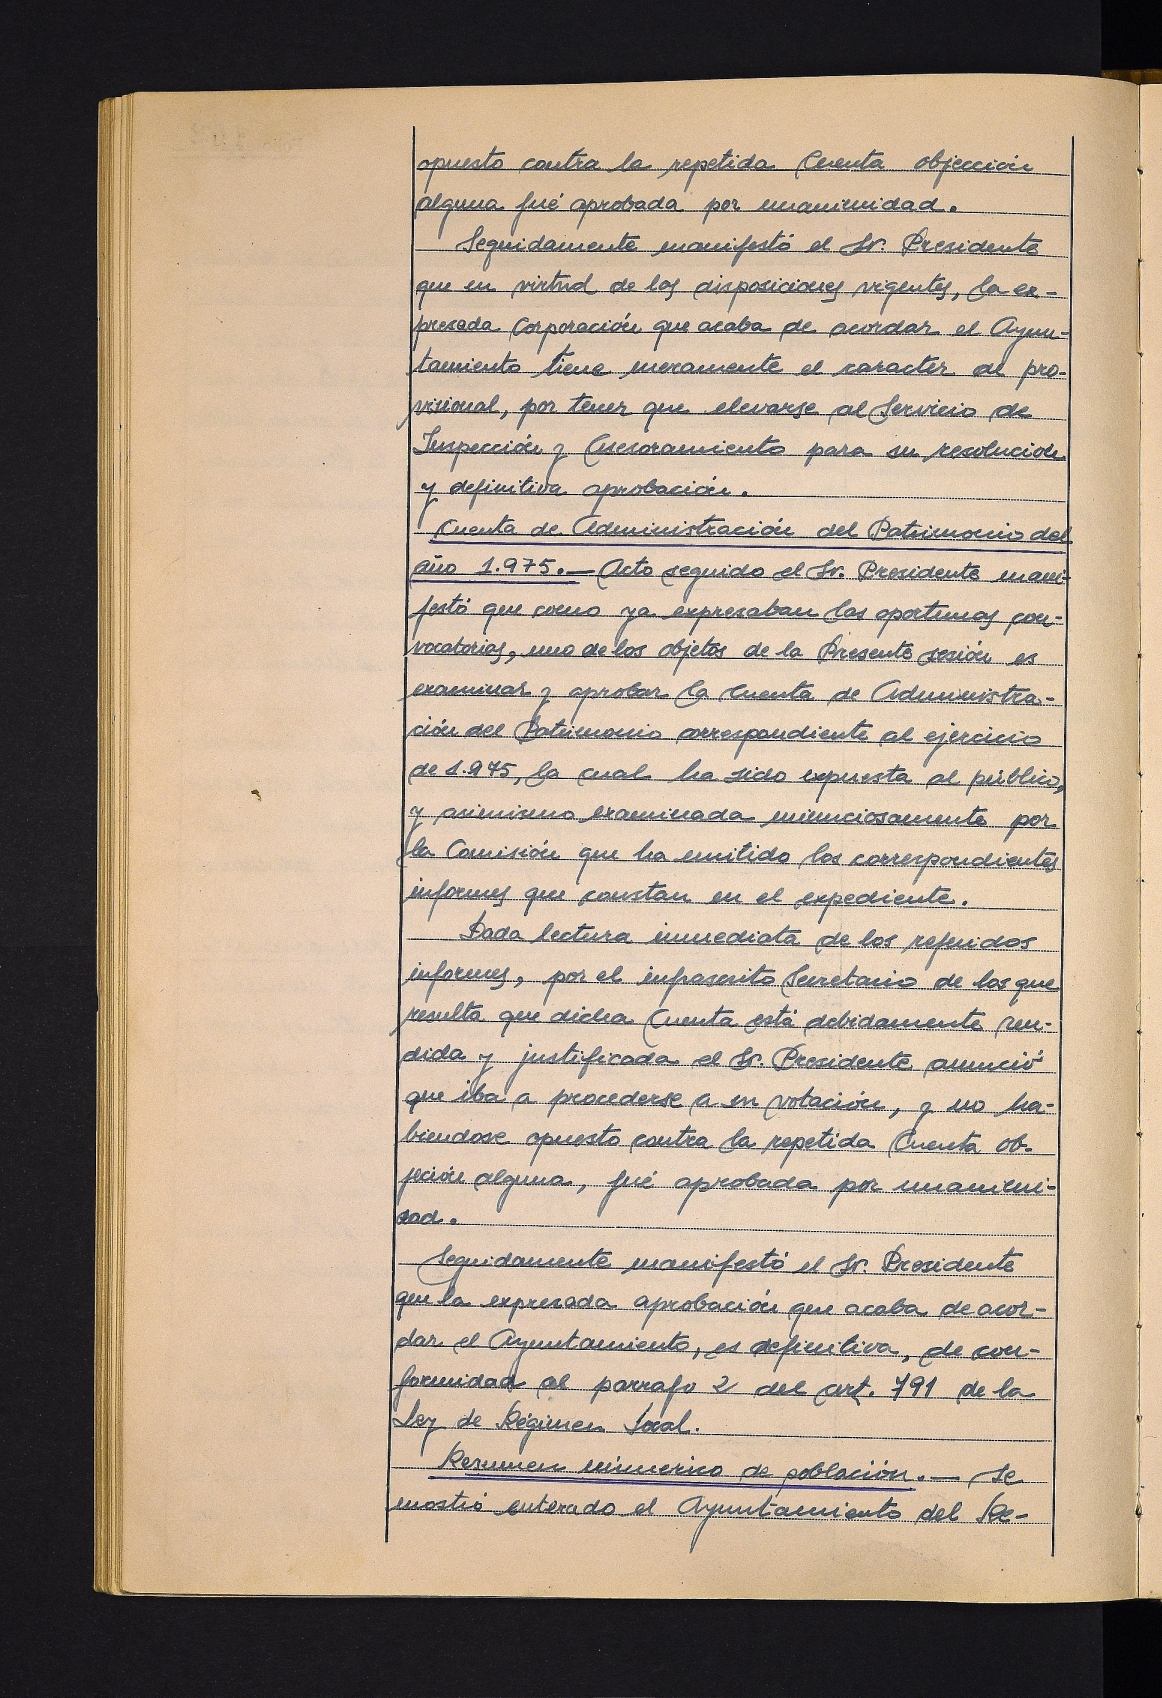 opuesto contra la repetida Cuenta objección
alguna fué aprobada por unanimidad.
Seguidamente manifestó el Sr. Presidente
que en virtud de las disposiciones vigentes, la ex-
presada Corporación que acaba de acordar el Ayun-
tamiento tiene meramente el caracter de pro-
visional, por tener que elevarse al Servicio de
Inspección y Asesoramiento para su resolución
y definitiva aprobación.
Cuenta de Administración del Patrimonio del
año 1.975.— Acto seguido el Sr. Presidente mani-
festó que como ya expresaban las oportunas con-
vocatorias, uno de los objetos de la Presente sesión es
examinar y aprobar la Cuenta de Administra-
ción del Patrimonio correspondiente al ejercicio
de 1.975, la cual ha sido expuesta al público,
y asimismo examinada minuciosamente por
la Comisión que ha emitido los correspondientes
informes que constan en el expediente.
Dada lectura inmediata de los referidos
informes, por el infrascrito Secretario de los que
resulta que dicha Cuenta está debidamente ren-
dida y justificada el Sr. Presidente anunció
que iba a procederse a su votación, y no ha-
biendose opuesto contra la repetida Cuenta ob-
jeción alguna, fué aprobada por unanimi-
dad.
Seguidamente manifestó el Sr. Presidente
que la expresada aprobación que acaba de acor-
dar el Ayuntamiento, es definitiva, de con-
formidad al parrafo 2 del art. 791 de la
Ley de Régimen Local.
Resumen númerico de población.— Se
mostró enterado el Ayuntamiento del Re-